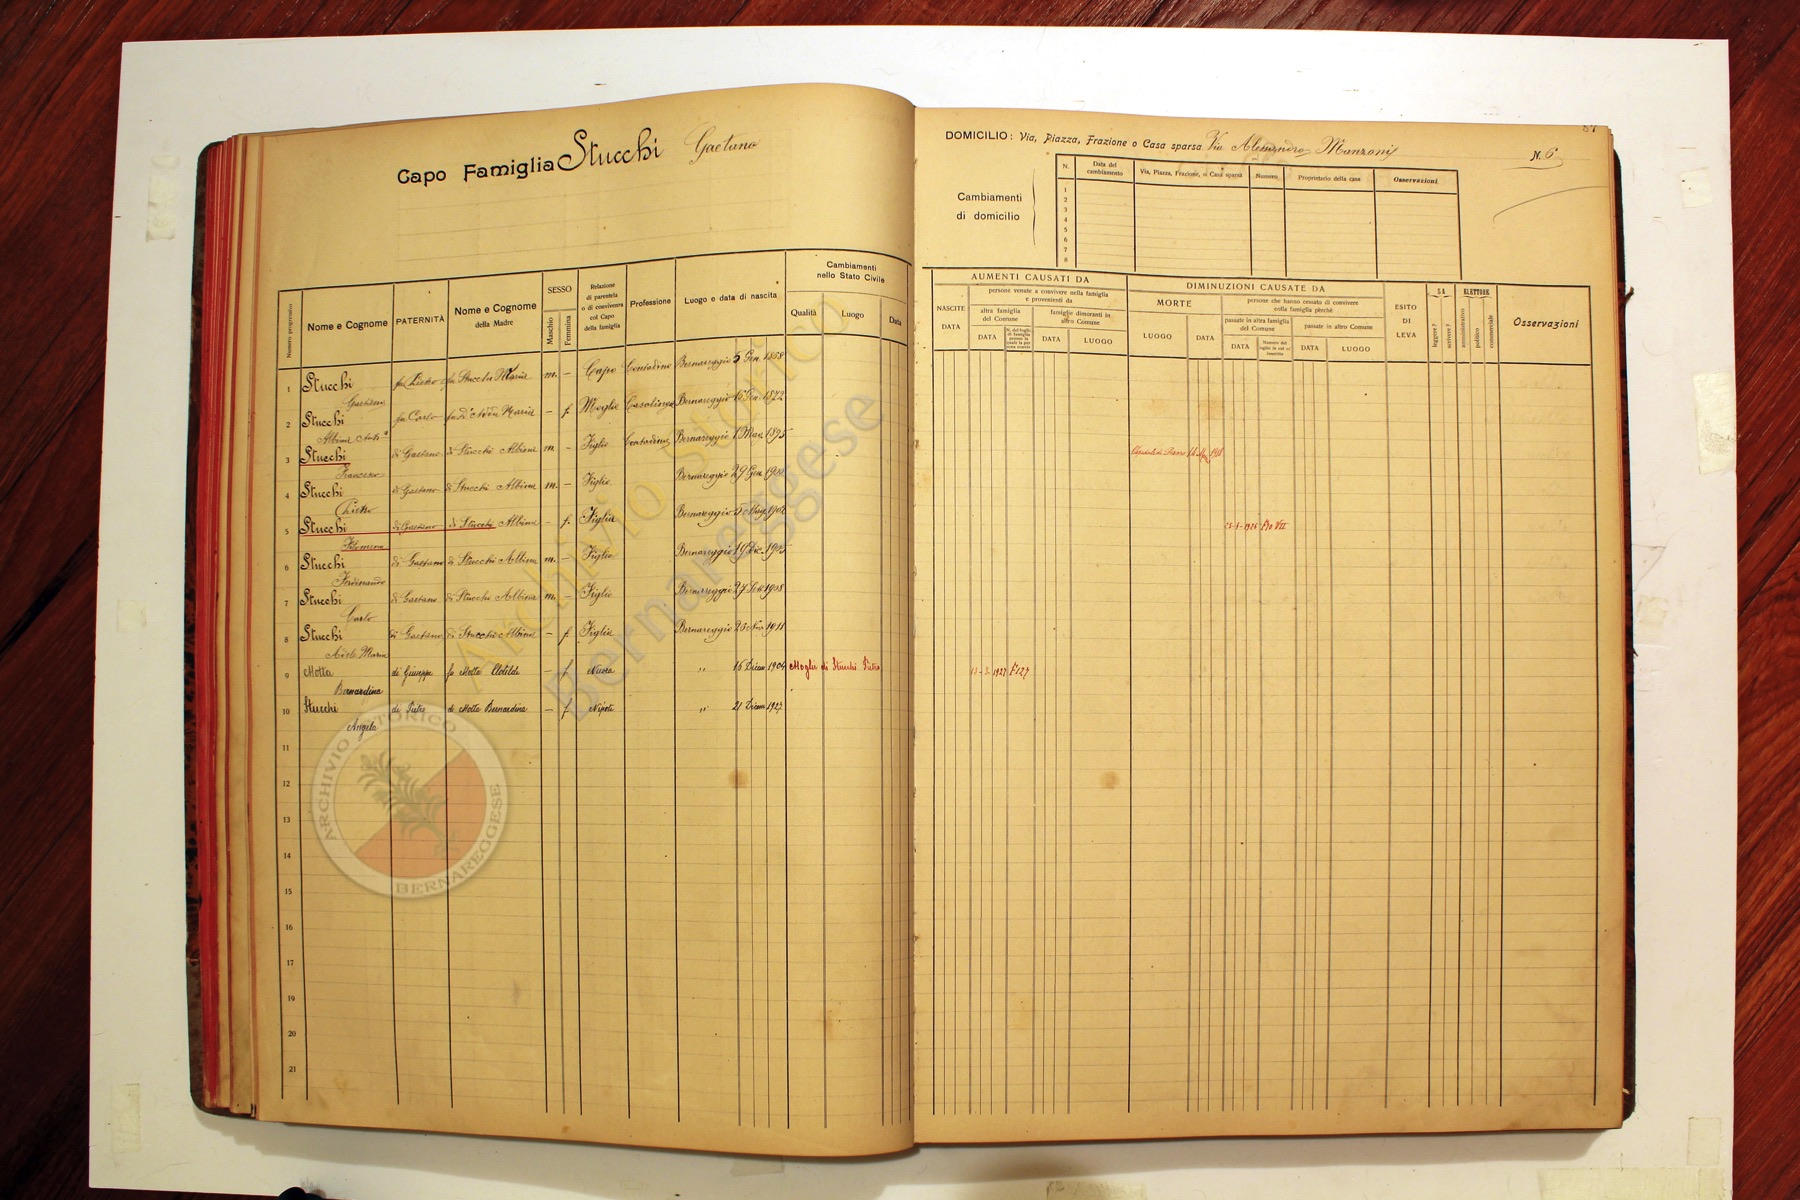 Capo Famiglia Stucchi Gaetano
Numero progressivo
Nome e Cognome
PATERNITÀ
Nome e Cognome della Madre
SESSO
Maschio
Femmina
Relazione di parentela o di convivenza col Capo della famiglia
Professione
Luogo e data di nascita
Cambiamenti nello Stato Civile
Qualità
Luogo
Data
1 Stucchi Gaetano fu Pietro fu Stucchi Maria m. – Capo Contadino Bernareggio 5 Gen. 1868
2 Stucchi fu Carlo Maria – f. Moglie Casalinga Bernareggio 1872
3 Stucchi Francesco di Gaetano di Stucchi Albina m. – Figlio Contadino Bernareggio 1 Mar. 1895
4 Stucchi Pietro di Gaetano di Stucchi Albina m. – Figlio Bernareggio 29 Gen. 1900
5 Stucchi Filomena di Gaetano di Stucchi Albina – f. Figlia Bernareggio 1902
6 Stucchi Ferdinando di Gaetano di Stucchi Albina m. – Figlio Bernareggio 19 Dic. 1905
7 Stucchi Carlo di Gaetano di Stucchi Albina m. – Figlio Bernareggio 27 1908
8 Stucchi Adele Maria di Gaetano di Stucchi Albina – f. Figlia Bernareggio 1911
9 Motta Bernardina di Giuseppe fu Motta Clotilde – f Nuora " 16 Dicem 1904 Moglie di Stucchi Pietro
10 Stucchi Angela di Pietro di Motta Bernardina – f Nipote " 21 Dicem 1927
11
12
13
14
15
16
17
18
19
20
21
87
DOMICILIO: Via, Piazza, Frazione o Casa sparsa Via Alessandro Manzoni
N. 6
Cambiamenti di domicilio
N.
Data del cambiamento
Via, Piazza, Frazione, o Casa sparsa
Numero
Proprietario della casa
Osservazioni
1
2
3
4
5
6
7
8
NASCITE
DATA
AUMENTI CAUSATI DA
persone venute a convivere nella famiglia e provenienti da
altra famiglia del Comune
DATA
famiglie dimoranti in altro Comune
DATA
LUOGO
DIMINUZIONI CAUSATE DA
MORTE
LUOGO
DATA
persone che hanno cessato di convivere colla famiglia perchè
passate in altra famiglia del Comune
DATA
passate in altro Comune
DATA
LUOGO
ESITO DI LEVA
SA
leggere?
scrivere?
ELETTORE
amministrativo
politico
commerciale
Osservazioni
1918
1926 Fio VII
1927 F 127
Archivio Storico
Bernareggese
ARCHIVIO STORICO
BERNAREGGESE